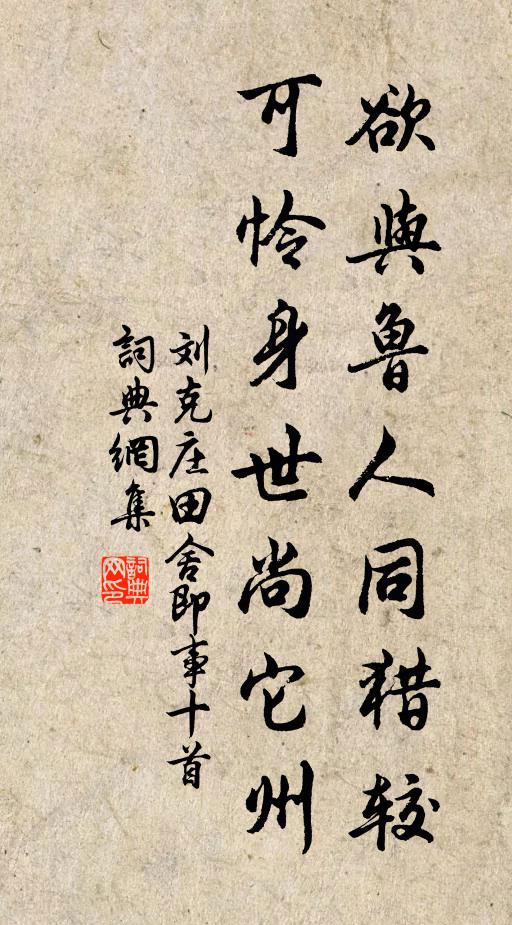 欲與鲁人同猎较
可怜身世尚它州
刘克庄田舍即事十首
詞典網集
詞典網印